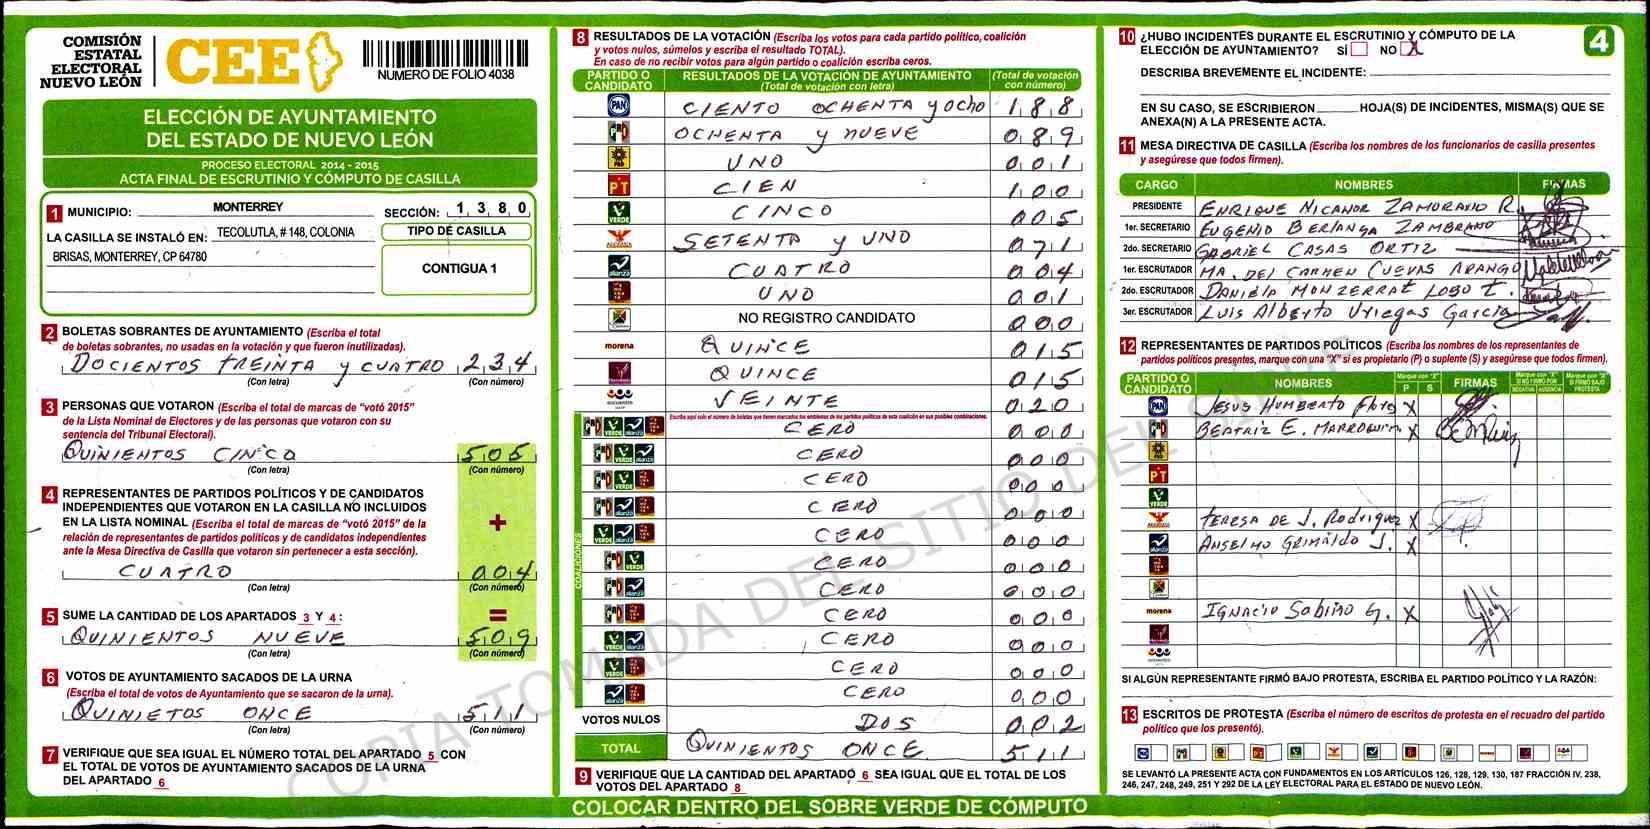 COMISIÓN
ESTATAL
ELECTORAL
NUEVO LEÓN
CEE
NUMERO DE FOLIO 4038
ELECCIÓN DE AYUNTAMIENTO
DEL ESTADO DE NUEVO LEÓN
PROCESO ELECTORAL 2014 - 2015
ACTA FINAL DE ESCRUTINIO Y CÓMPUTO DE CASILLA
1 MUNICIPIO: MONTERREY SECCIÓN: 1 3 8 0
LA CASILLA SE INSTALÓ EN: TECOLUTLA, # 148, COLONIA
BRISAS, MONTERREY, CP 64780
TIPO DE CASILLA
CONTIGUA 1
2 BOLETAS SOBRANTES DE AYUNTAMIENTO (Escriba el total
de boletas sobrantes, no usadas en la votación y que fueron inutilizadas).
DOCIENTOS TREINTA y CUATRO 2 3 4
(Con letra) (Con número)
3 PERSONAS QUE VOTARON (Escriba el total de marcas de “votó 2015”
de la Lista Nominal de Electores y de las personas que votaron con su
sentencia del Tribunal Electoral).
QUINIENTOS CINCO 5 0 5
(Con letra) (Con número)
4 REPRESENTANTES DE PARTIDOS POLÍTICOS Y DE CANDIDATOS
INDEPENDIENTES QUE VOTARON EN LA CASILLA NO INCLUIDOS
EN LA LISTA NOMINAL (Escriba el total de marcas de “votó 2015” de la
relación de representantes de partidos políticos y de candidatos independientes
ante la Mesa Directiva de Casilla que votaron sin pertenecer a esta sección).
+
CUATRO 0 0 4
(Con letra) (Con número)
5 SUME LA CANTIDAD DE LOS APARTADOS 3 Y 4:
=
QUINIENTOS NUEVE 5 0 9
(Con letra) (Con número)
6 VOTOS DE AYUNTAMIENTO SACADOS DE LA URNA
(Escriba el total de votos de Ayuntamiento que se sacaron de la urna).
QUINIETOS ONCE 5 1 1
(Con letra) (Con número)
7 VERIFIQUE QUE SEA IGUAL EL NÚMERO TOTAL DEL APARTADO 5 CON
EL TOTAL DE VOTOS DE AYUNTAMIENTO SACADOS DE LA URNA
DEL APARTADO 6
8 RESULTADOS DE LA VOTACIÓN (Escriba los votos para cada partido político, coalición
y votos nulos, súmelos y escriba el resultado TOTAL).
En caso de no recibir votos para algún partido o coalición escriba ceros.
PARTIDO O CANDIDATO RESULTADOS DE LA VOTACIÓN DE AYUNTAMIENTO (Total de votación con letra) (Total de votación con número)
PAN CIENTO OCHENTA y ocho 1 8 8
PRD OCHENTA y NUEVE 0 8 9
PRD UNO 0 0 1
PT CIEN 1 0 0
VERDE CINCO 0 0 5
SETENTA y UNO 0 7 1
alianza CUATRO 0 0 4
UNO 0 0 1
NO REGISTRO CANDIDATO 0 0 0
morena QUINCE 0 1 5
QUINCE 0 1 5
encuentro VEINTE 0 2 0
COALICIONES
Escriba aquí solo el número de boletas que tienen marcados los emblemas de los partidos políticos de esta coalición en sus posibles combinaciones.
CERO 0 0 0
CERO 0 0 0
CERO 0 0 0
CERO 0 0 0
CERO 0 0 0
CERO 0 0 0
CERO 0 0 0
CERO 0 0 0
CERO 0 0 0
CERO 0 0 0
CERO 0 0 0
VOTOS NULOS DOS 0 0 2
TOTAL QUINIENTOS ONCE 5 1 1
9 VERIFIQUE QUE LA CANTIDAD DEL APARTADO 6 SEA IGUAL QUE EL TOTAL DE LOS
VOTOS DEL APARTADO 8
COLOCAR DENTRO DEL SOBRE VERDE DE CÓMPUTO
4
10 ¿HUBO INCIDENTES DURANTE EL ESCRUTINIO Y CÓMPUTO DE LA
ELECCIÓN DE AYUNTAMIENTO? SÍ NO X
DESCRIBA BREVEMENTE EL INCIDENTE:
EN SU CASO, SE ESCRIBIERON HOJA(S) DE INCIDENTES, MISMA(S) QUE SE
ANEXA(N) A LA PRESENTE ACTA.
11 MESA DIRECTIVA DE CASILLA (Escriba los nombres de los funcionarios de casilla presentes
y asegúrese que todos firmen).
CARGO NOMBRES FIRMAS
PRESIDENTE ENRIQUE NICANOR ZAMORANO R.
1er. SECRETARIO EUGENIO BERLANGA ZAMBRANO
2do. SECRETARIO GABRIEL CASAS ORTIZ
1er. ESCRUTADOR MA. DEL CARMEN CUEVAS ARANGO
2do. ESCRUTADOR DANIELA MONZERRAT LOBO T.
3er. ESCRUTADOR Luis Alberto Uriegas Garcia
12 REPRESENTANTES DE PARTIDOS POLÍTICOS (Escriba los nombres de los representantes de
partidos políticos presentes, marque con una “X” si es propietario (P) o suplente (S) y asegúrese que todos firmen).
PARTIDO O CANDIDATO NOMBRES Marque con “X” P S FIRMAS Marque con “X” SI NO FIRMÓ POR NEGATIVA AUSENCIA Marque con “X” SI FIRMÓ BAJO PROTESTA
PAN JESUS HUMBERTO Flores X
BEATRIZ E. MARROQUIN X
PRD
PT
VERDE
TERESA DE J. Rodriguez X
alianza ANSELMO GRIMALDO J. X
morena IGNACIO Sabino G. X
SI ALGÚN REPRESENTANTE FIRMÓ BAJO PROTESTA, ESCRIBA EL PARTIDO POLÍTICO Y LA RAZÓN:
13 ESCRITOS DE PROTESTA (Escriba el número de escritos de protesta en el recuadro del partido
político que los presentó).
SE LEVANTÓ LA PRESENTE ACTA CON FUNDAMENTOS EN LOS ARTÍCULOS 126, 128, 129, 130, 187 FRACCIÓN IV, 238,
246, 247, 248, 249, 251 Y 292 DE LA LEY ELECTORAL PARA EL ESTADO DE NUEVO LEÓN.
COPIA TOMADA DEL SITIO DEL SIPRE